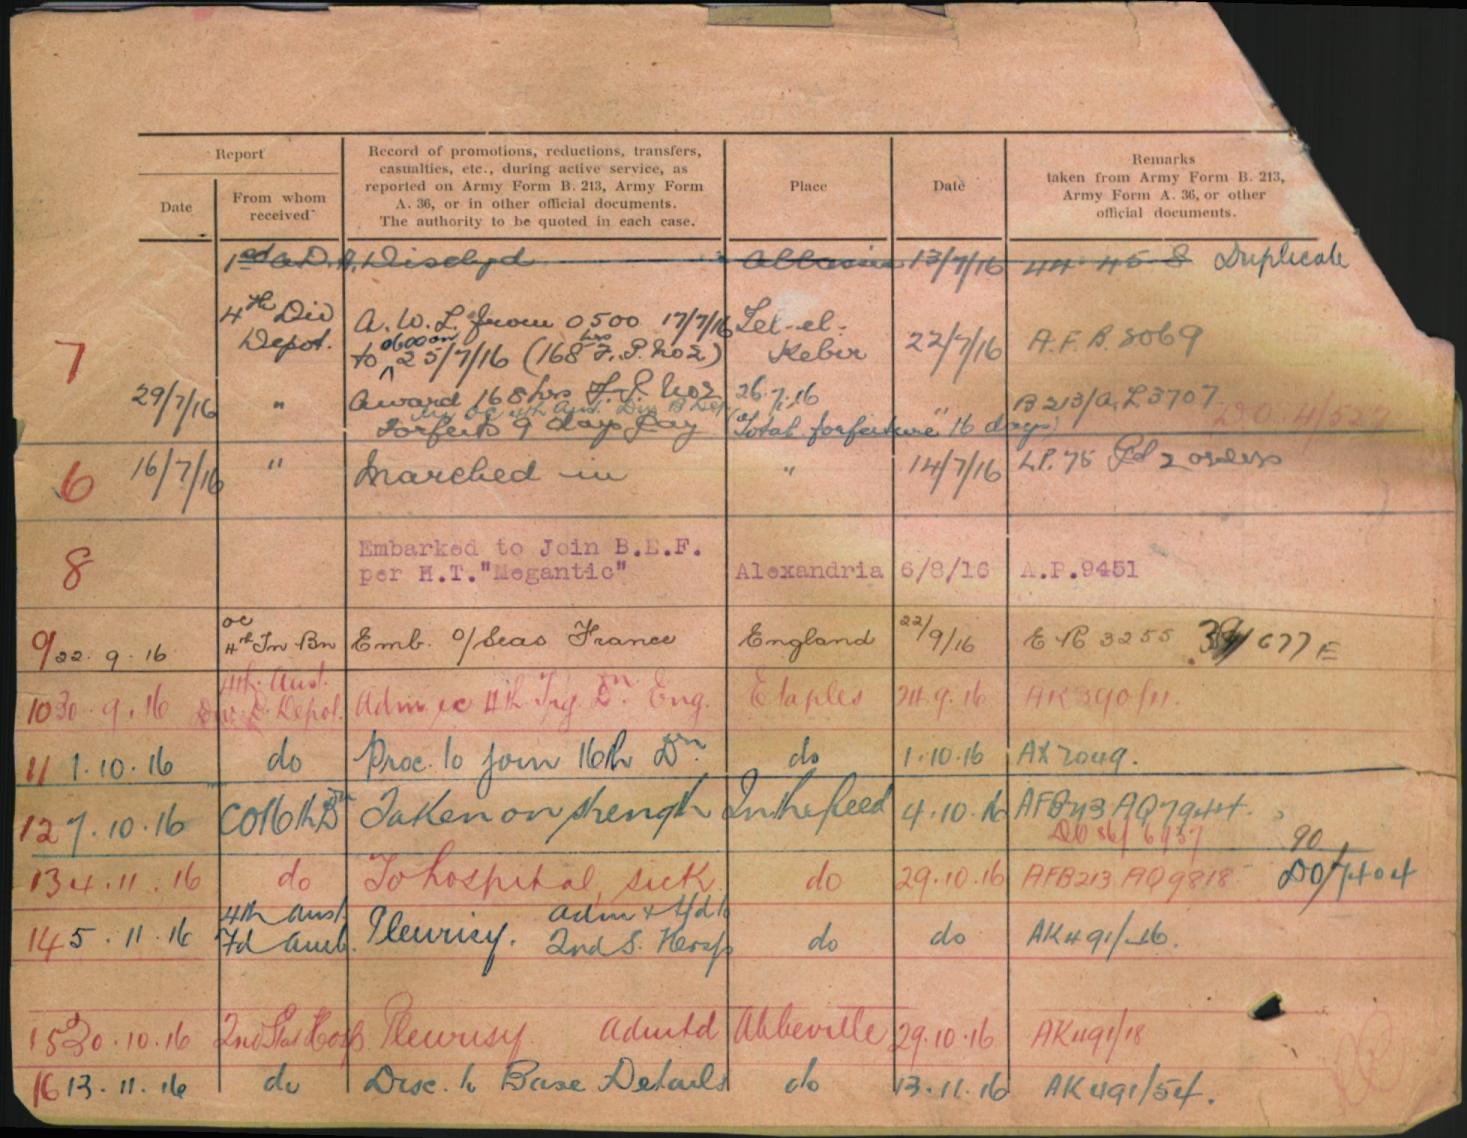 Report
Record of promotions, reductions, transfers,
casualties, etc., during active service, as
reported on Army Form B. 213, Army Form
A. 36, or in other official documents.
The authority to be quoted in each case.
Place
Date
Remarks
taken from Army Form B. 213,
Army Form A. 36, or other
official documents.
Date
From whom
received
Dischgd 13/7/16 44 45 8 Duplicate
7
4th Div
Depot.
A.W.L. from 0500 17/7/16
to 0600 on 25/7/16 (168 hrs F.P. No 2)
Tel-el-
Kebir
22/7/16
A.F.B. 2069
29/7/16 " Award 168 hrs F.P. No 2 26.7.16 B213/A.L3707
Forfeits 9 days pay Total forfeiture 16 days
6 16/7/16 " Marched in " 14/7/16 Pd 2 orders
8
Embarked to Join B.E.F.
per H.T."Megantic"
Alexandria 6/8/16 A.P.9451
9 22.9.16
OC
4th Tn Bn
Emb. O/Seas France England 22/9/16 677 E
10 30.9.16
4th Aust.
Div. B. Depot.
Adm ic 4th Trg Bn Eng. Etaples 24.9.16 AK390/11.
11 1.10.16 do Proc. to join 16th Bn. do 1.10.16
12 7.10.16 CO 16th Bn Taken on strength In the field 4.10.16 AFB213 AQ7944.
13 4.11.16 do To hospital, sick do 29.10.16 AFB213 AQ9818
14 5.11.16
4th Aust.
Fd Amb.
Pleurisy. Adm & tfd to
2nd S. Hosp
do do AK491/16.
15 30.10.16 2nd Stat Hosp Pleurisy. Admtd Abbeville 29.10.16 AK491/18
16 13.11.16 do Disc. to Base Details do 13.11.16 AK491/54.